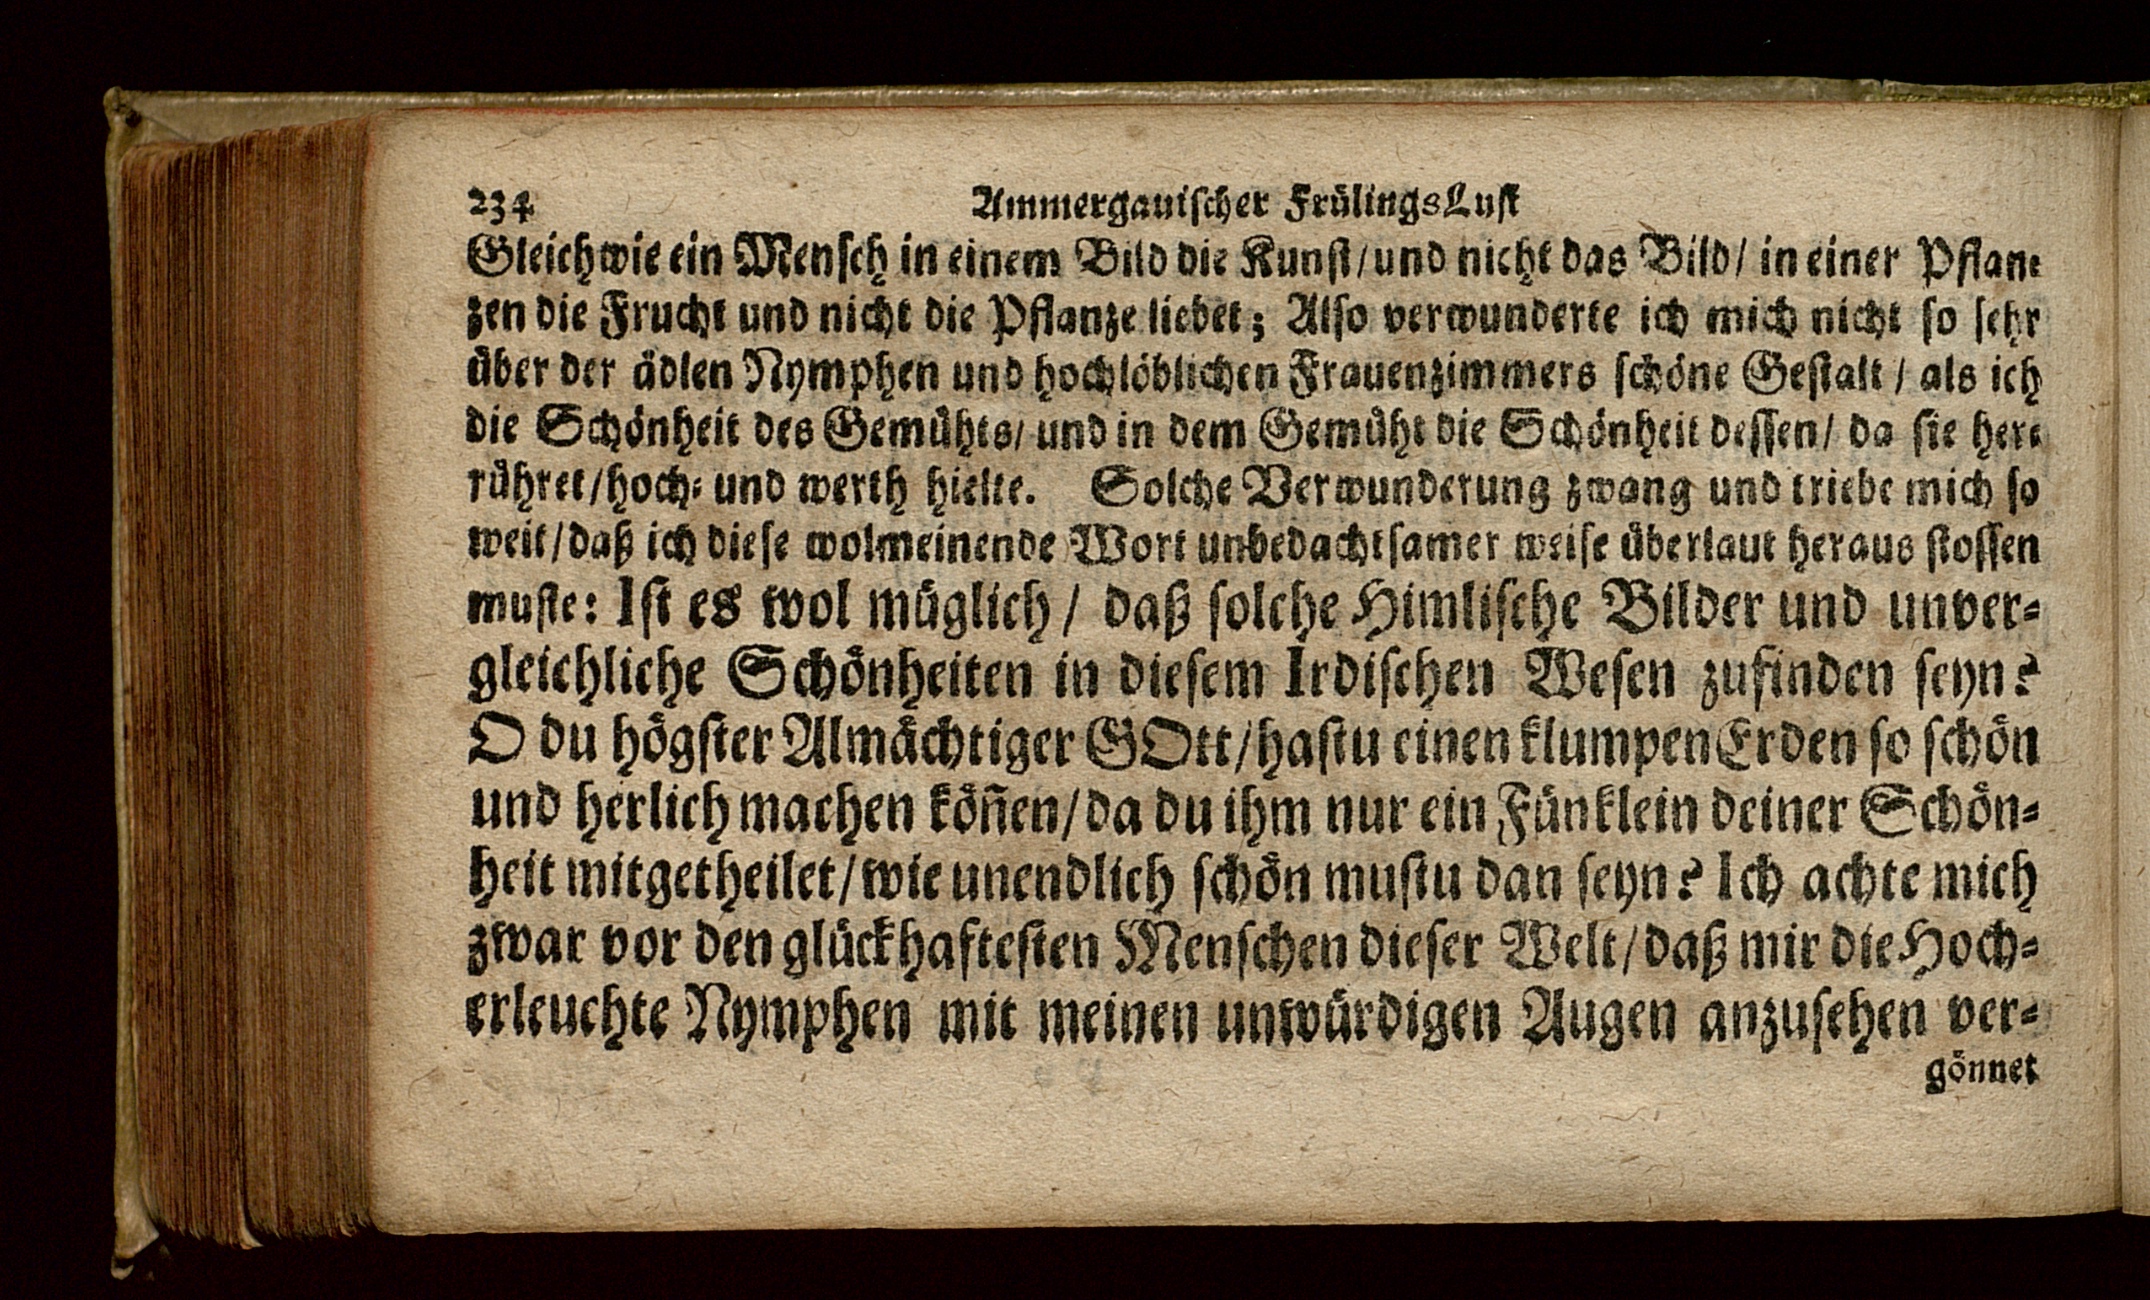 234 Ammergauischer FrülingsLust
Gleichwie ein Mensch in einem Bild die Kunst/ und nicht das Bild/ in einer Pflan-
zen die Frucht und nicht die Pflanze liebet; Also verwunderte ich mich nicht so sehr
über der ädlen Nymphen und hochlöblichen Frauenzimmers schöne Gestalt / als ich
die Schönheit des Gemühts/ und in dem Gemüht die Schönheit dessen/ da sie her-
rühret/hoch- und werth hielte. Solche Verwunderung zwang und triebe mich so
weit/daß ich diese wolmeinende Wort unbedachtsamer weise überlaut heraus stossen
muste: Ist es wol müglich/ daß solche Himlische Bilder und unver-
gleichliche Schönheiten in diesem Irdischen Wesen zufinden seyn?
O du högster Almächtiger GOtt/hastu einen klumpen Erden so schön
und herlich machen köñen/da du ihm nur ein Fünklein deiner Schön-
heit mitgetheilet/wie unendlich schön mustu dan seyn? Ich achte mich
zwar vor den glückhaftesten Menschen dieser Welt/daß mir die Hoch-
erleuchte Nymphen mit meinen unwürdigen Augen anzusehen ver-
gönnet